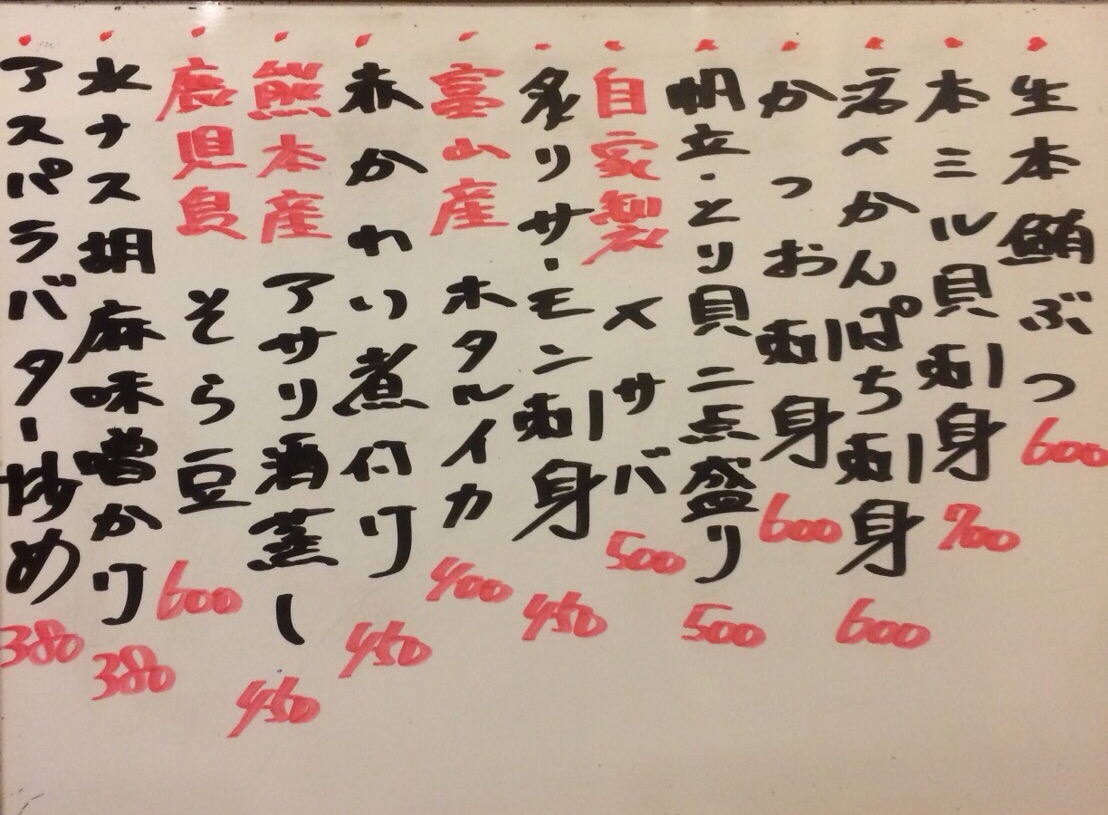 生本鮪ぶつ 600
本ミル貝刺身 700
活〆かんぱち刺身 600
かつお刺身 600
帆立・とり貝二点盛り 500
自家製 〆サバ 500
炙りサーモン刺身 450
富山産 ホタルイカ 400
赤かれい煮付け 450
熊本産 アサリ酒蒸し 450
鹿児島 そら豆 600
水ナス胡麻味噌かけ 380
アスパラバター炒め 380